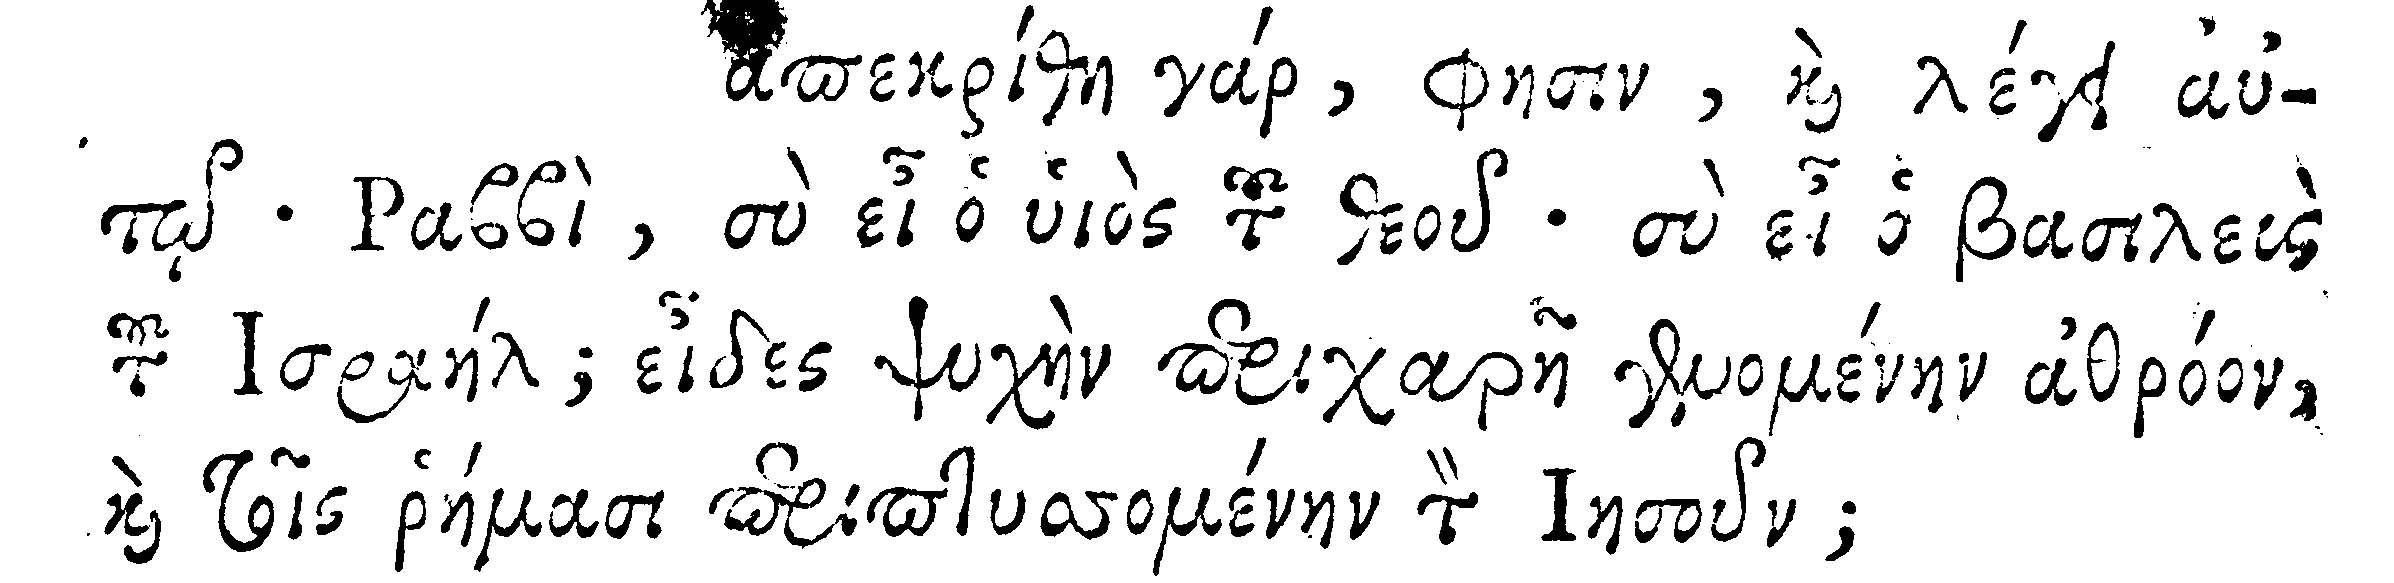 ἀπεκρίθη γάρ, φησιν, καὶ λέγει αὐ-
τῷ· Ραββὶ, σὺ εἶ ὁ υἱὸς τοῦ θεοῦ· σὺ εἶ ὁ βασιλεὺς
τοῦ Ισραήλ; εἶδες ψυχὴν περιχαρῆ γενομένην ἀθρόον,
καὶ τοῖς ῥήμασι περιπτυσσομένην τὸν Ιησοῦν;